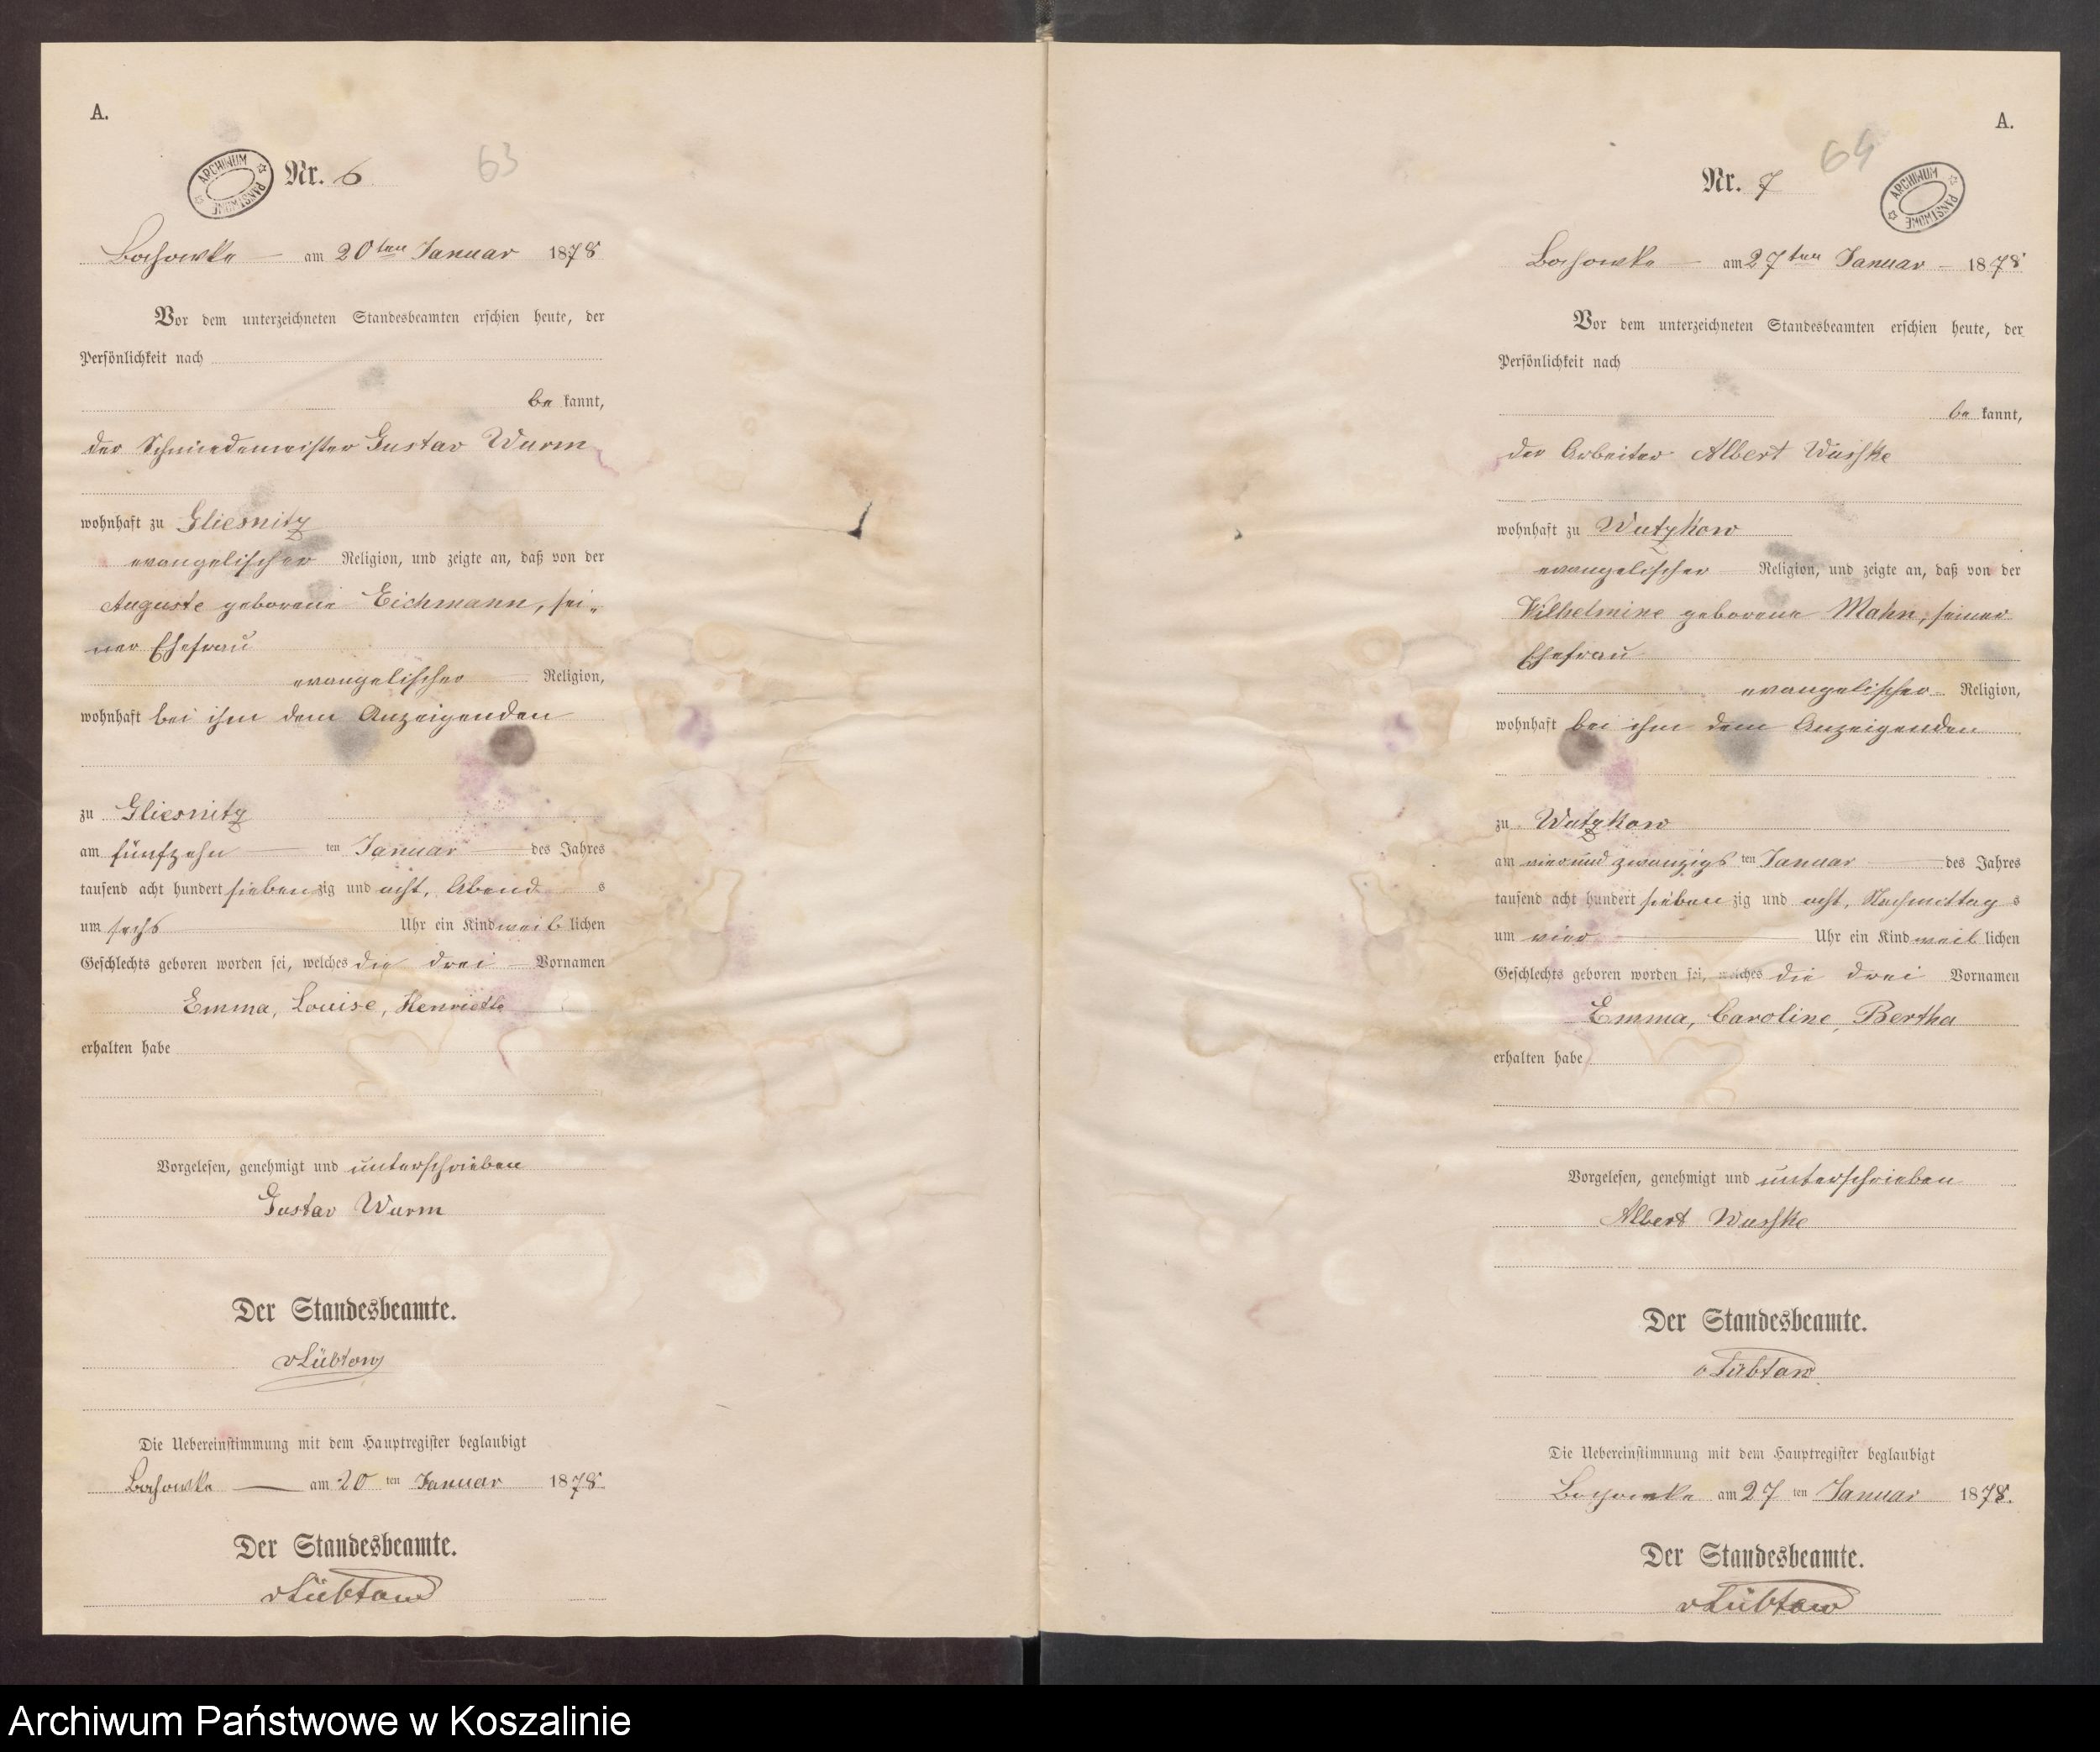 A.
ARCHIWUM PAŃSTWOWE
Nr. 6
63
Bochowke am 20ten Januar 1878
Vor dem unterzeichneten Standesbeamten erschien heute, der
Persönlichkeit nach
be kannt,
der Schmiedemeister Gustav Wurm
wohnhaft zu Gliesnitz
evangelischer Religion, und zeigte an, daß von der
Auguste geborene Eichmann, sei-
ner Ehefrau
evangelischer Religion,
wohnhaft bei ihm dem Anzeigenden
zu Gliesnitz
am fünfzehn ten Januar des Jahres
tausend acht hundert sieben zig und acht, Abend s
um sechs Uhr ein Kind weib lichen
Geschlechts geboren worden sei, welches die drei Vornamen
Emma, Louise, Henriette
erhalten habe
Vorgelesen, genehmigt und unterschrieben
Gustav Wurm
Der Standesbeamte.
vLübtow
Die Uebereinstimmung mit dem Hauptregister beglaubigt
Bochowke am 20 ten Januar 1878.
Der Standesbeamte.
vLübtow
A.
64
Nr. 7
ARCHIWUM PAŃSTWOWE
Bochowke am 27ten Januar 1878
Vor dem unterzeichneten Standesbeamten erschien heute, der
Persönlichkeit nach
be kannt,
der Arbeiter Albert
wohnhaft zu Wutzkow
evangelischer Religion, und zeigte an, daß von der
Wilhelmine geborene Mahn, seiner
Ehefrau
evangelischer Religion,
wohnhaft bei ihm dem Anzeigenden
zu Wutzkow
am vier und zwanzigs ten Januar des Jahres
tausend acht hundert sieben zig und acht, Nachmittag s
um vier Uhr ein Kind weib lichen
Geschlechts geboren worden sei, welches die drei Vornamen
Emma, Caroline, Bertha
erhalten habe
Vorgelesen, genehmigt und unterschrieben
Albert
Der Standesbeamte.
vLübtow
Die Uebereinstimmung mit dem Hauptregister beglaubigt
Bochowke am 27 ten Januar 1878.
Der Standesbeamte.
vLübtow
Archiwum Państwowe w Koszalinie